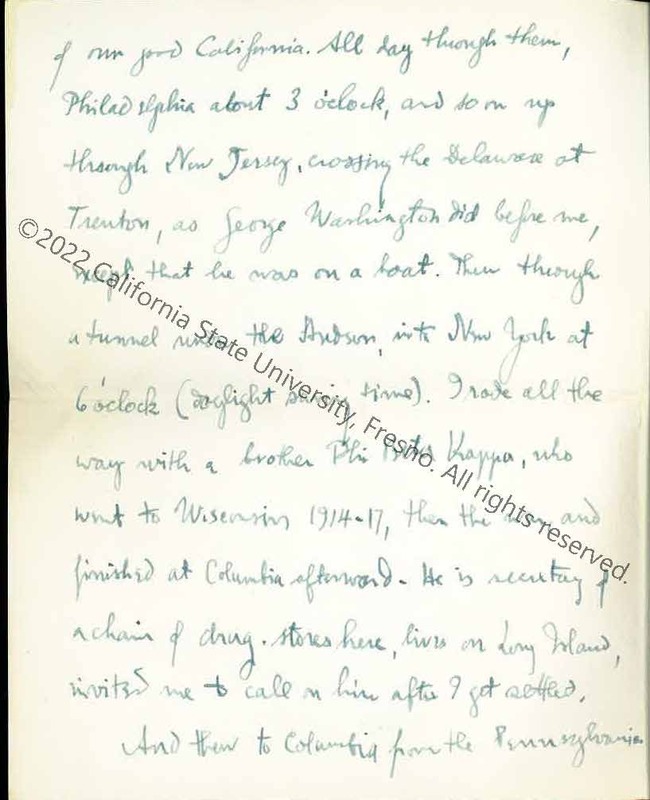 of our good California. All day through them,
Philadelphia about 3 o'clock, and so on up
through New Jersey, crossing the Delaware at
Trenton, as George Washington did before me,
except that he was on a boat. Then through
a tunnel under the Hudson, into New York at
6 o'clock (daylight saving time). I rode all the
way with a brother Phi Beta Kappa, who
went to Wisconsin 1914-17, then the war and
finished at Columbia afterward. He is secretary of
a chain of drug-stores here, lives on Long Island,
invited me to call on him after I get settled.
And then to Columbia from the Pennsylvania
©2022 California State University, Fresno. All rights reserved.